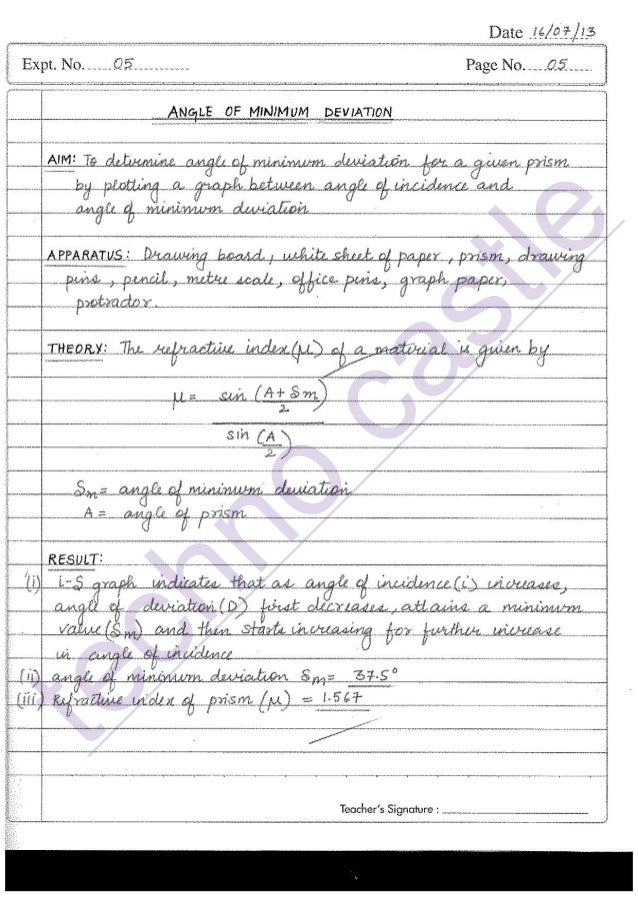 Date 16/07/13
Expt. No. 05 Page No. 05
ANGLE OF MINIMUM DEVIATION
AIM: To determine angle of minimum deviation for a given prism
by plotting a graph between angle of incidence and
angle of minimum deviation
APPARATUS: Drawing board, white sheet of paper, prism, drawing
pins, pencil, metre scale, office pins, graph paper,
protractor.
THEORY: The refractive index (μ) of a material is given by
μ = sin (A + δm / 2)
sin (A / 2)
δm = angle of mininum deviation
A = angle of prism
RESULT:
(i) i-δ graph indicates that as angle of incidence (i) increases,
angle of deviation (D) first decreases, attains a minimum
value (δm) and then starts increasing for further increase
in angle of incidence
(ii) angle of minimum deviation δm = 37.5°
(iii) Refractive index of prism (μ) = 1.567
Teacher's Signature :
techno castle